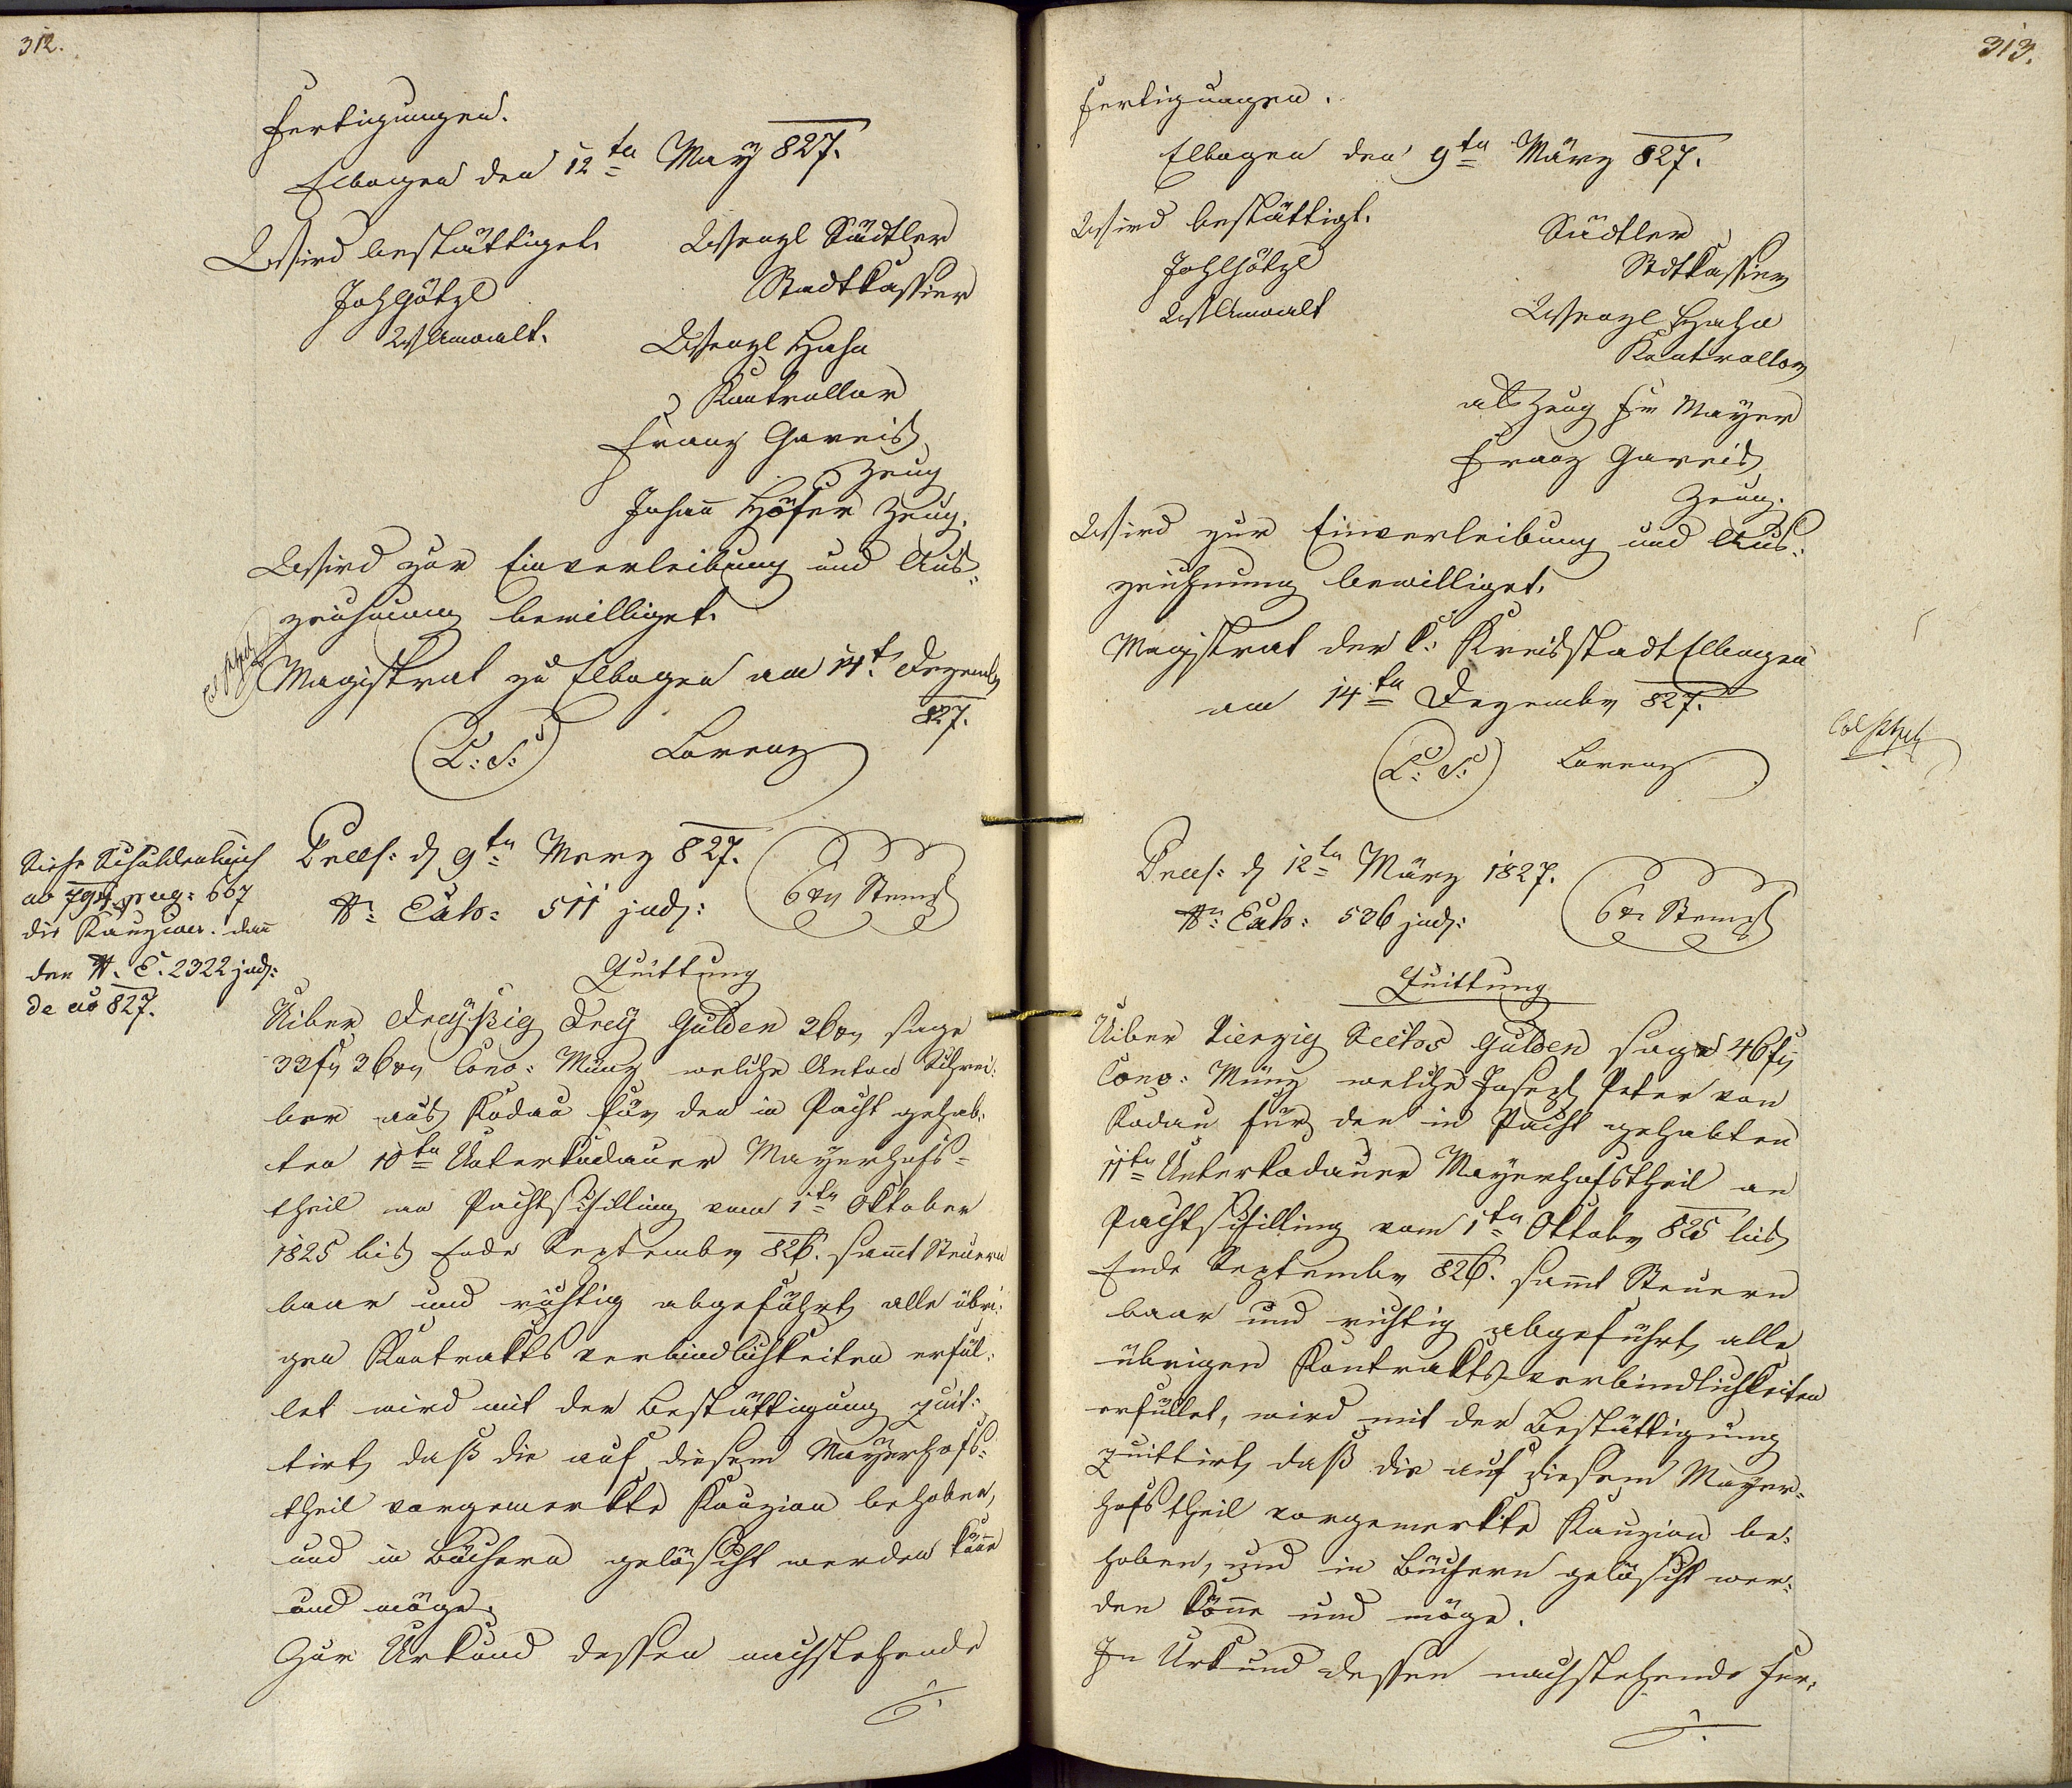 312.
Fertigungen.
Elbogen den 12ten May 827.
Wird bestättiget. Wenzl Südtler
Joh Götzl Stadtkassier
WAnwalt. Wenzl Hahn
Kontrollor
Franz Gareis
Zeug
Johañ Höfer Zeug.
Wird zur Einverleibung und Aus-
zeichnung bewilliget.
Magistrat zu Elbogen am 14t Dezemb
827.
(L: S:) Lorenz
Siehe Schuldenbuch
ao 794 pag: 667
die Kauzion. dañ
den N. E. 2322 jud:
de ao 827.
Praes: d 9ten Merz 827.
Nr. Exh: 511 jud: 6 xr Stemp
Quittung
Uiber Dreyßig Drey Gulden 36 xr sage
33 fl 36 xr Conv: Münz welche Anton Schrei-
ber aus Kodau für den in Pacht gehab-
ten 10ten Unterkodauer Mayerhofs-
theil an Pachtschilling vom 1ten Oktober
1825 bis Ende Septemb 826. sam̃t Steuern
baar und richtig abgeführt, alle übri-
gen Kontraktsverbindlichkeiten erfül-
let wird mit der Bestättigung quit-
tirt, daß die auf diesem Mayerhofs-
theil vorgemerkte Kauzion behoben,
und in Büchern gelöscht werden köñe
und möge.
Zur Urkund dessen nachstehende
./.
313.
Fertigungen.
Elbogen den 9ten März 827.
Wird bestättigt. Südtler
Joh Götzl Stdtkassier
WAnwalt Wenzl Hahn
Kontrollor
als Zeug Fr Mayer
Franz Gareis
Zeug.
Wird zur Einverleibung und Aus-
zeichnung bewilliget.
Magistrat der k: Kreisstadt Elbogen
am 14ten Dezemb 827.
(L: S:) Lorenz
Praes: d 12ten März 1827.
Nr. Exh: 526 jud: 6 xr Stemp
Quittung
Uiber Vierzig Sechs Gulden sage 46 fl
Conv: Münz welche Josef Peter von
Kodau für den in Pacht gehabten
11ten Unterkodauer Mayerhofstheil an
Pachtschilling vom 1ten Oktob 825 bis
Ende Septemb 826. sam̃t Steuern
baar und richtig abgeführt, alle
übrigen Kontraktsverbindlichkeiten
erfüllet, wird mit der Bestättigung
quittirt, daß die auf diesem Mayer-
hofstheil vorgemerkte Kauzion be-
hoben, und in Büchern gelöscht wer-
den köñe und möge.
In Urkund dessen nachstehende Fer-
./.